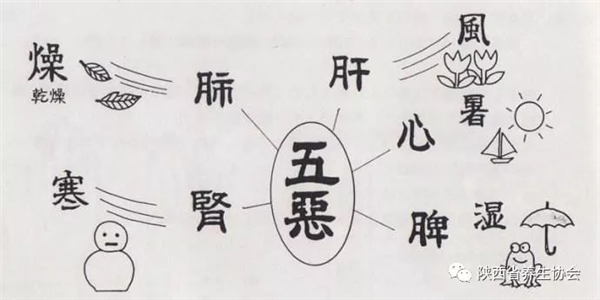 燥
乾燥
肺
肝
風
心
暑
五惡
寒
腎
脾
湿
陕西省养生协会